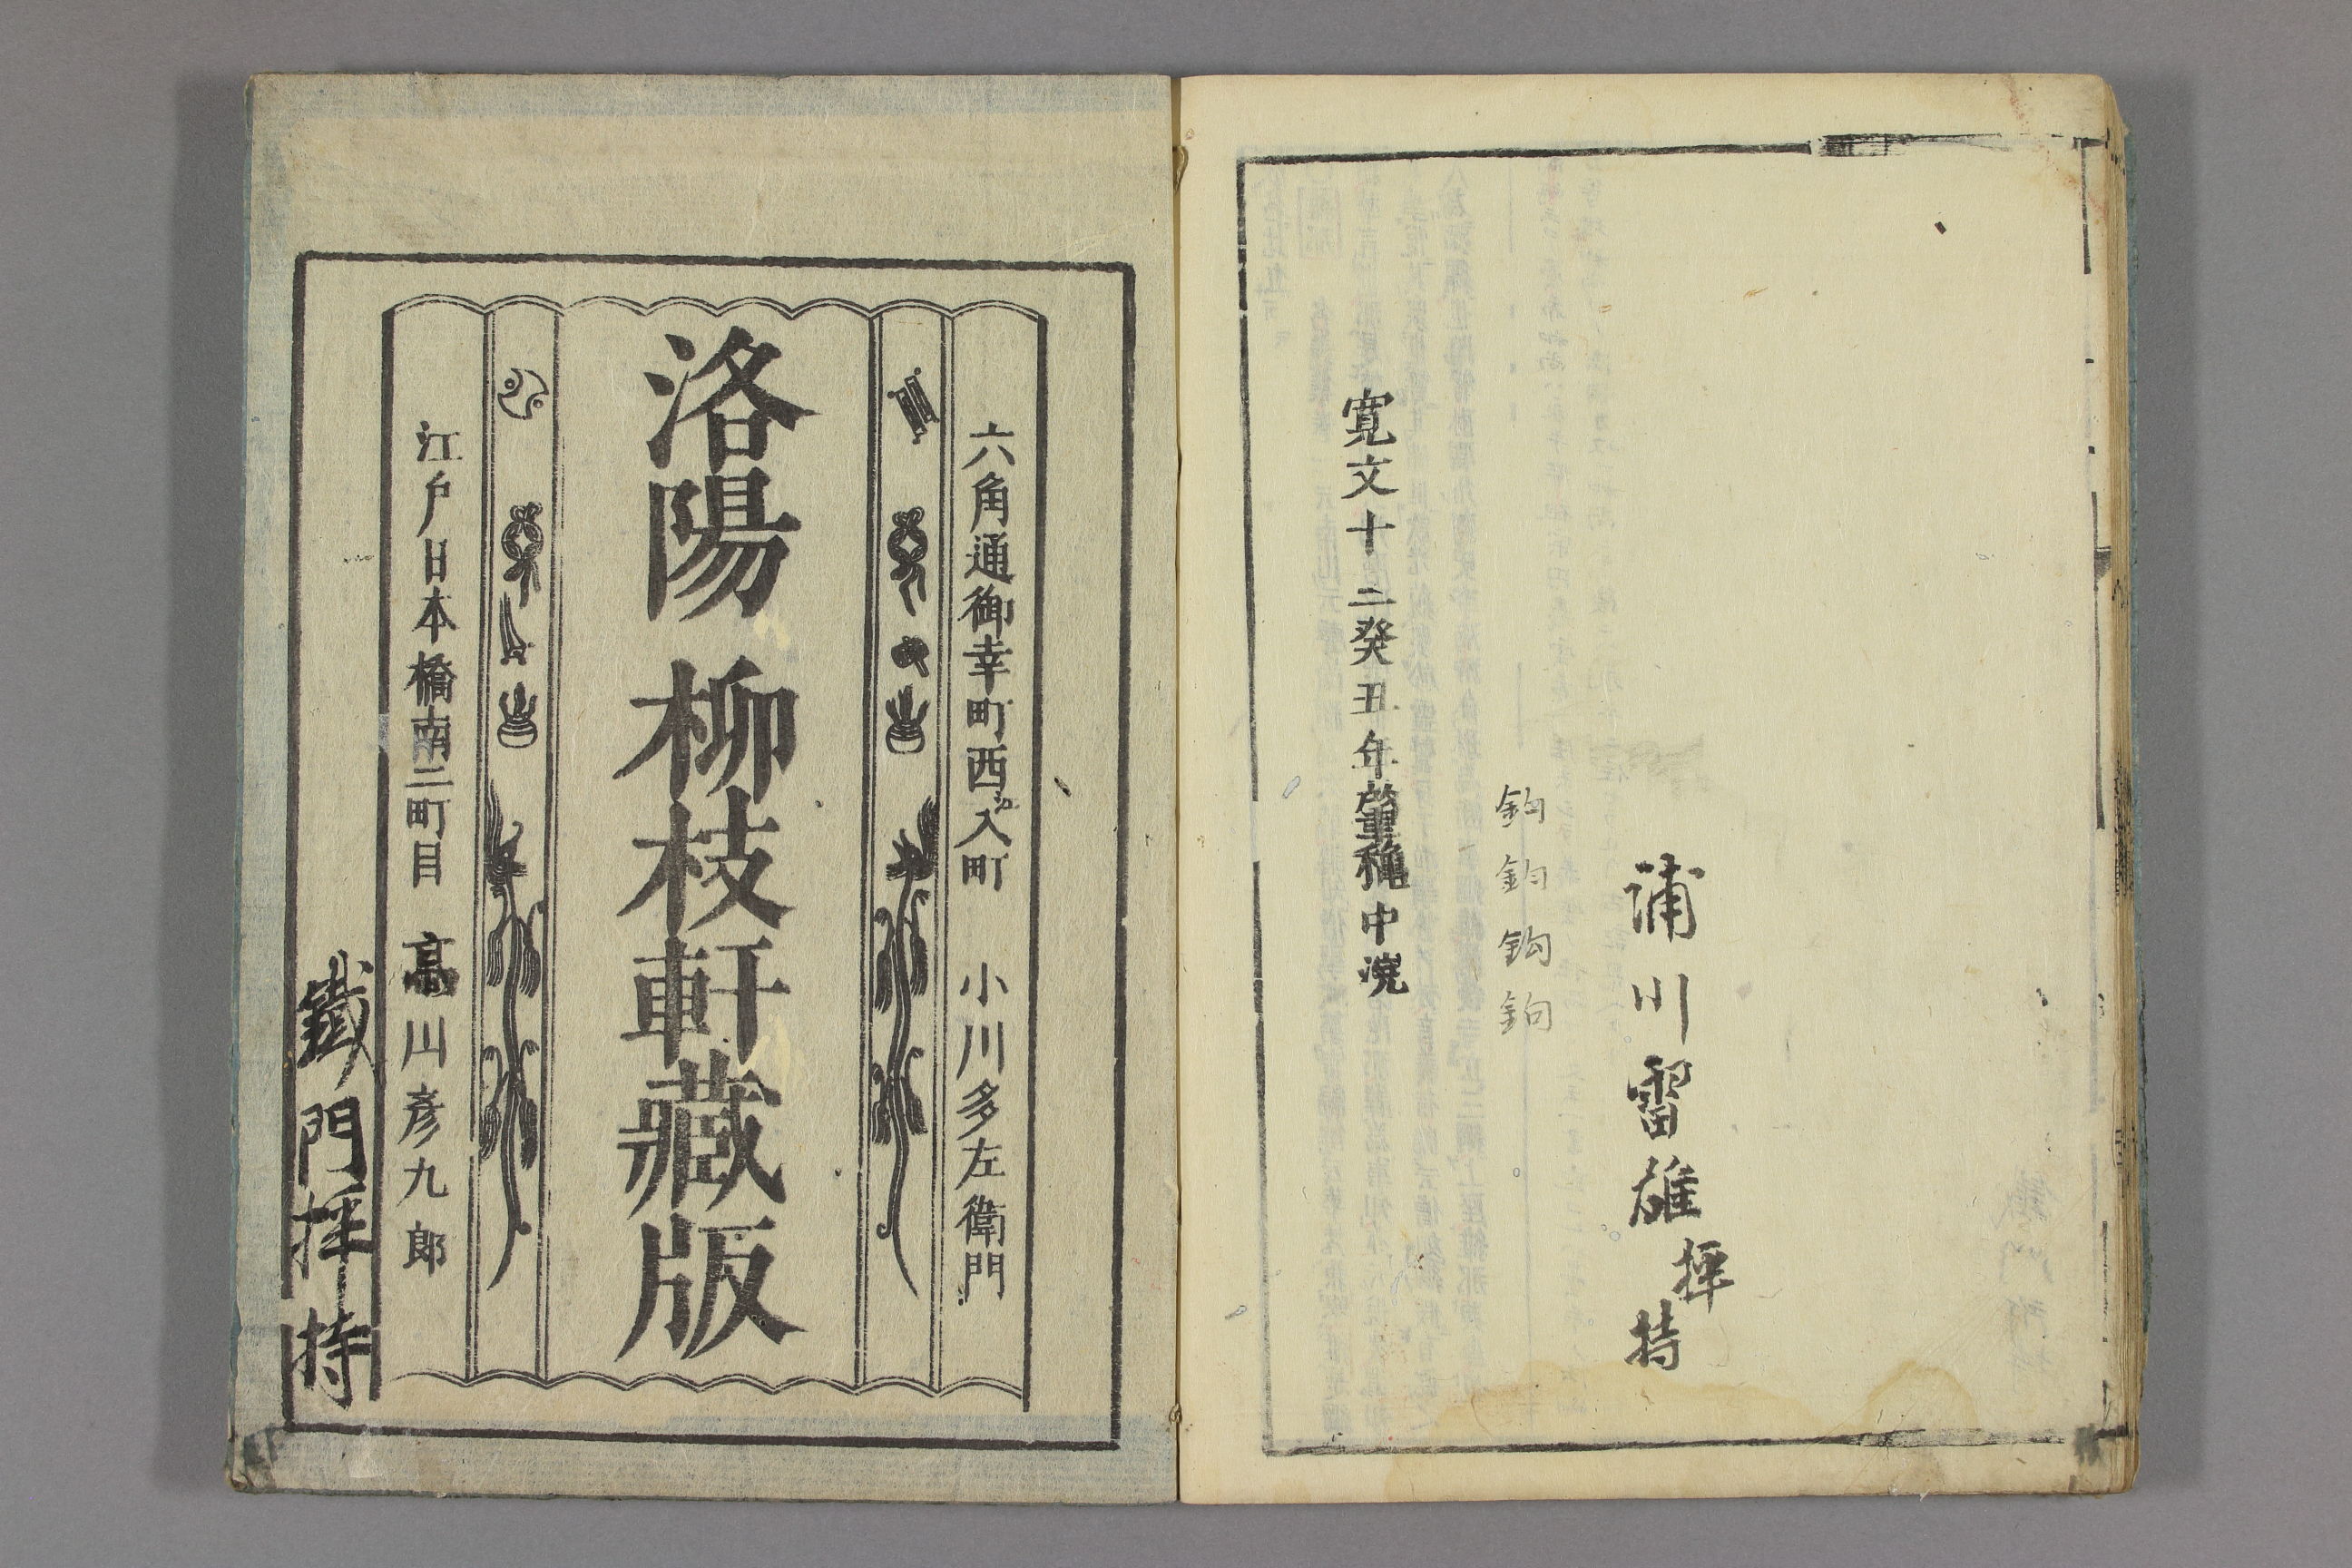 蒲川雷雄拝持
鈎鈎鈎鉤
寛文十二癸丑年肇穐中浣
六角通御幸町西入町　小川多左衛門
洛陽　柳枝軒藏版
江戸日本橋南二町目　高川彦九郎
鐵門拝持